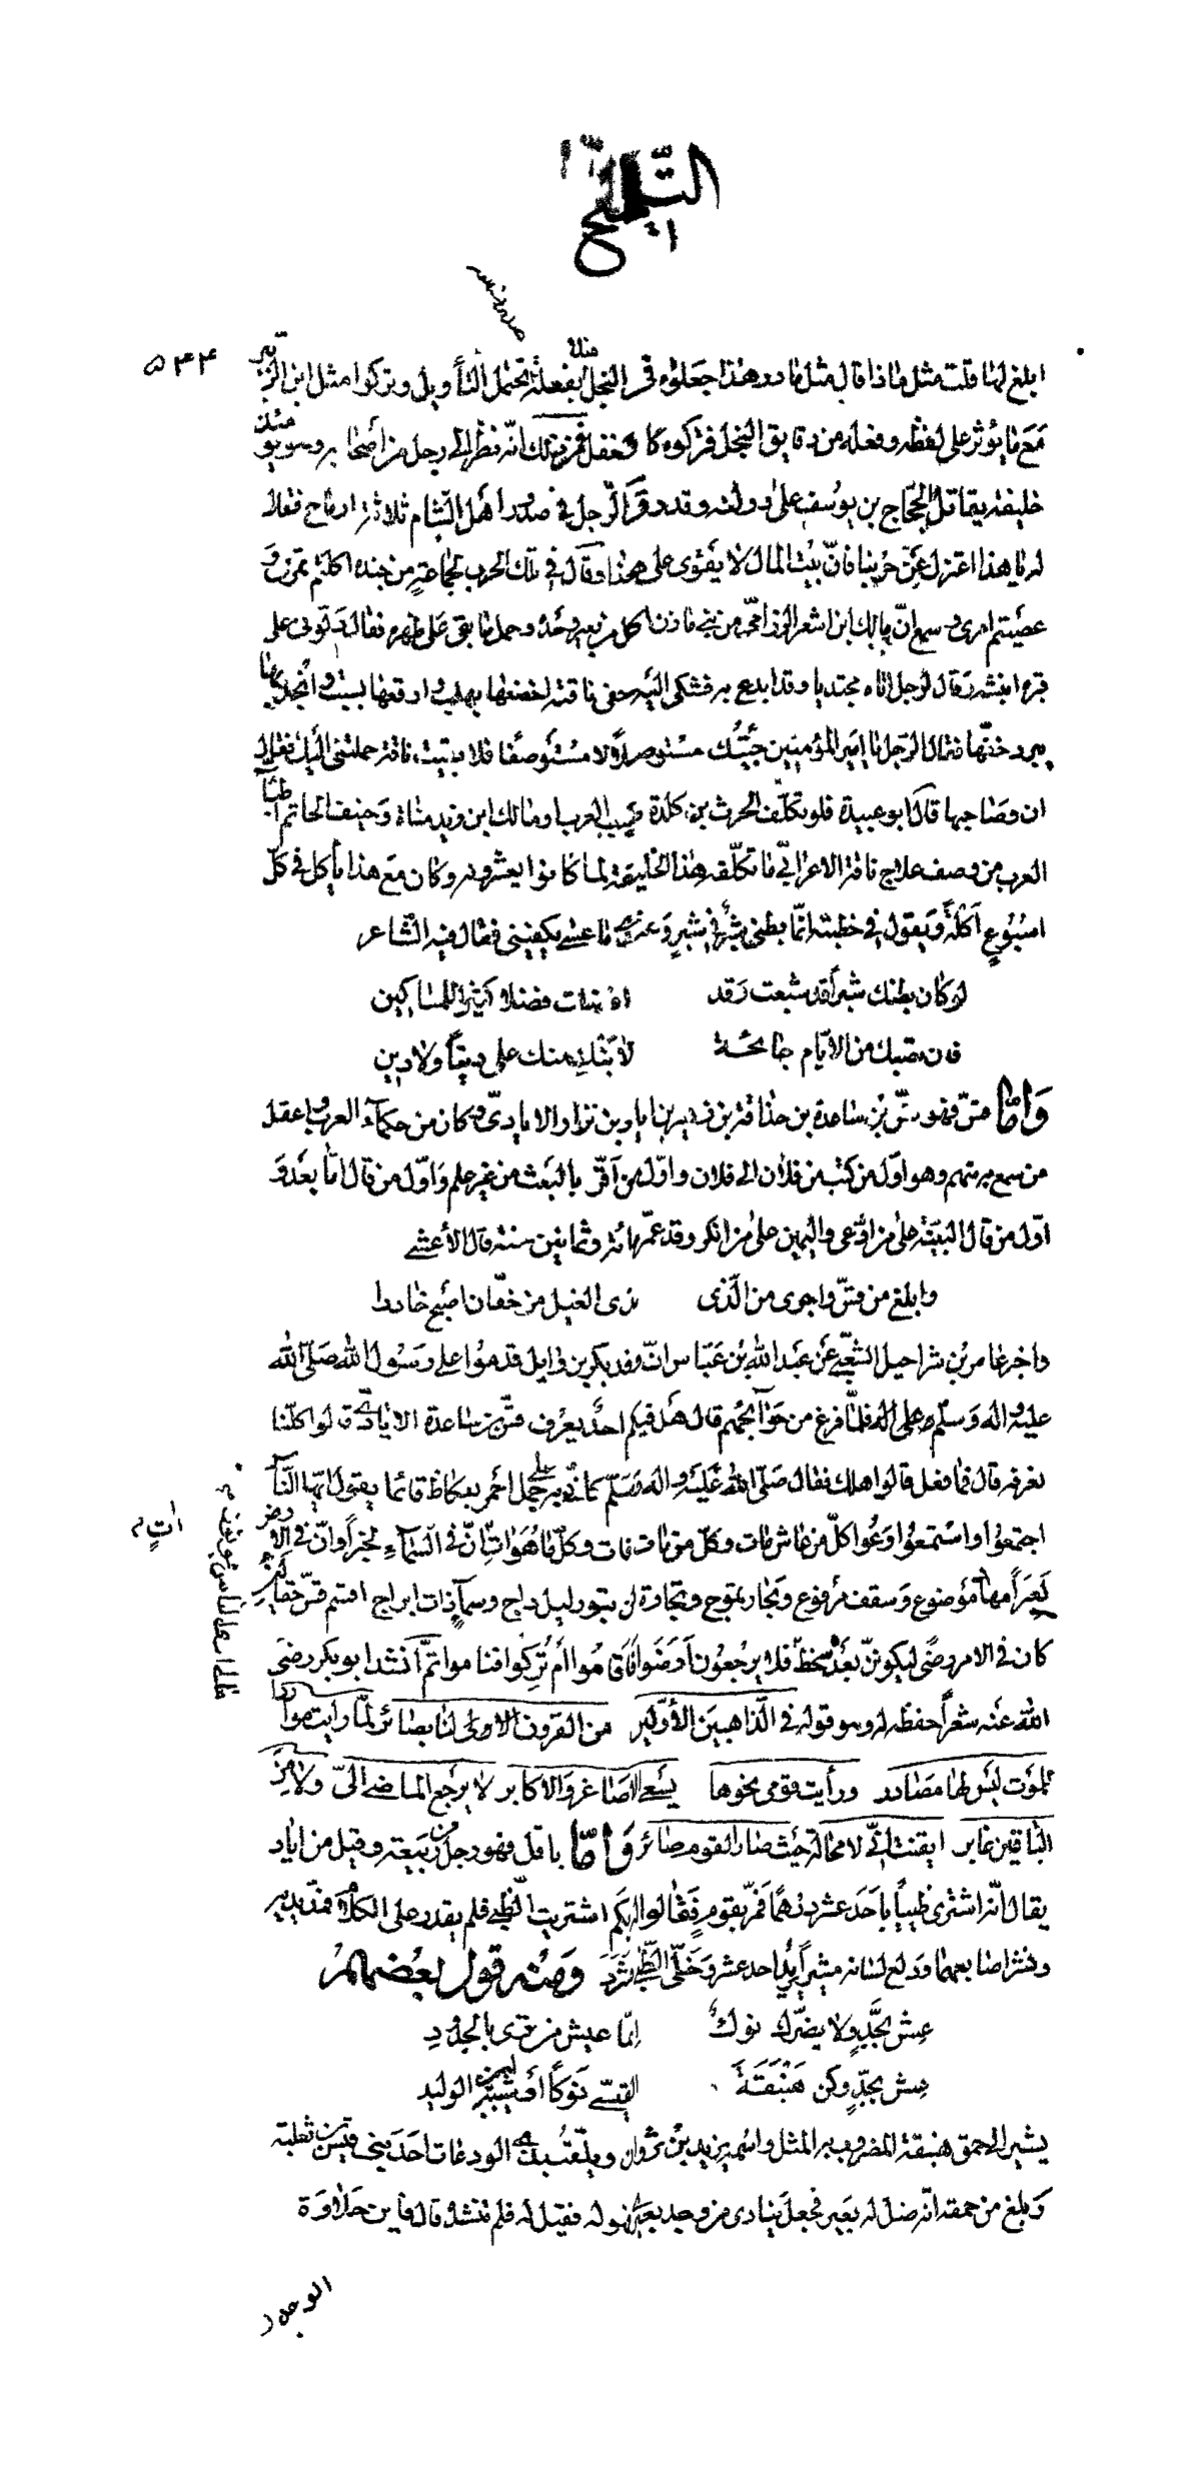 التلميح
٥٣٤
ابلغ لما قلت مثل ماذا قال مثل مادر هذا جعلوه في البخل مثلا بفعلة تحتمل التأويل وتركوا مثل ابن الزبير
مع ما يؤثر على لفظه وفعله من دقايق البخل فتركوه كالغفل فمن ذلك انه نظر الى رجل من اصحابه وهو يومئذ
خليفة يقاتل الحجاج بن يوسف على دولته وقد دق الرجل في صدور اهل الشام ثلاثة ارماح فقال
له يا هذا اعتزل عن حربنا فان بيت المال لا يقوى على هذا وقال في تلك الحرب لجماعة من جنده اكلتم تمري و
عصيتم امري وسمع ان مالك ابن اشعر الرزامي من بني مازن اكل من بعير وحده وحمل ما بقي على ظهره فقال دلوني على
قبره انبشه وقال لرجل اتاه مجتديا وقد ابدع به فشكى اليه حفى ناقته اخصفها بهلب وارقعها بسبت وانجد بها
يبرد خفها فقال الرجل يا امير المؤمنين جئتك مستوصلا لا مستوصفا فلا بقيت ناقة حملتني اليك فقال
ان وصاحبها قال ابو عبيدة فلو تكلف الحرث بن كلدة طبيب العرب او مالك ابن زيد مناة وحنيف الحاتم اطبآ
العرب من وصف علاج ناقة الاعرابي ما تكلفه هذا الخليفة لما كانوا يعشرونه وكان مع هذا يأكل في كل
اسبوع اكلة ويقول في خطبته انما بطني شبر في شبر وعندي ما عسى يكفيني فقال فيه الشاعر
لو كان بطنك شبرا قد شبعت وقد افضلت فضلا كثيرا للمساكين
فان تصبك من الايام جائحة لا نبك منك على دنيا ولا دين
واما قس فهو قس بن ساعدة بن حذافة بن زهير بن اياد بن نزار الايادي وكان من حكمآء العرب واعقل
من سمع به منهم وهو اول من كتب من فلان الى فلان واول من اقر بالبعث من غير علم واول من قال اما بعد و
اول من قال البينة على من ادعى واليمين على من انكر وقد عمر مائة وثمانين سنة قال الأعشى
وابلغ من قس واجرى من الذي بذي الغيل من خفان اصبح خادرا
واخبر عامر بن شراحيل الشعبي عن عبد الله بن عباس ان وفد بكر بن وايل قدموا على رسول الله صلى الله
عليه واله وسلم فلما فرغ من حوآئجهم قال هل فيكم احد يعرف قس بن ساعدة الايادي قالوا كلنا
نعرفه قال فما فعل قالوا هلك فقال صلى الله عليه واله وسلم كاني به على جمل احمر بعكاظ قائما يقول ايها الناس
اجتمعوا واستمعوا وعوا كل من عاش مات وكل من مات فات وكل ما هو ات ات ان في السمآء لخبرا وان في الارض
لعبرا مهاد موضوع وسقف مرفوع وبحار تموج وتجارة لن تبور ليل داج وسمآء ذات ابراج اقسم قس حقا لئن
كان في الامر رضى ليكونن بعده سخط فلا يرجعون ارضوا فاقاموا ام تركوا فناموا ثم انشد ابو بكر رضي
الله عنه شعرا حفظه له وهو قوله في الذاهبين الأولين من القرون الاولى لنا بصائر لما رايت مواردا
للموت ليس لها مصادر ورأيت قومي نحوها يسعى الاصاغر والاكابر لا يرجع الماضي الي ولا من
الباقين غابر ايقنت اني لا محالة حيث صار القوم صائر واما باقل فهو رجل من ربيعة وقيل من اياد
يقال انه اشترى ظبيا باحد عشر درهما فمر بقوم فقالوا له بكم اشتريت الظبي فلم يقدر على الكلام فمد يديه
ونشر اصابعهما ودلع لسانه مشيرا يريد احد عشر وخلى الظبي فشرد ومنه قول بعضهم
عش بجد ولا يضرك نوك انما عيش من ترى بالجدود
عش بجد وكن هبنقة القيسي نوكا او شيبة بن الوليد
يشير الى حمق هبنقة المضروب به المثل واسمه يزيد بن ثروان ويلقب بذي الودعات احد بني قيس بن ثعلبة
وبلغ من حمقه انه ضل له بعير فجعل ينادي من وجد بعيرا فهو له فقيل له فلم تنشد قال فاين حلاوة
الوجدان